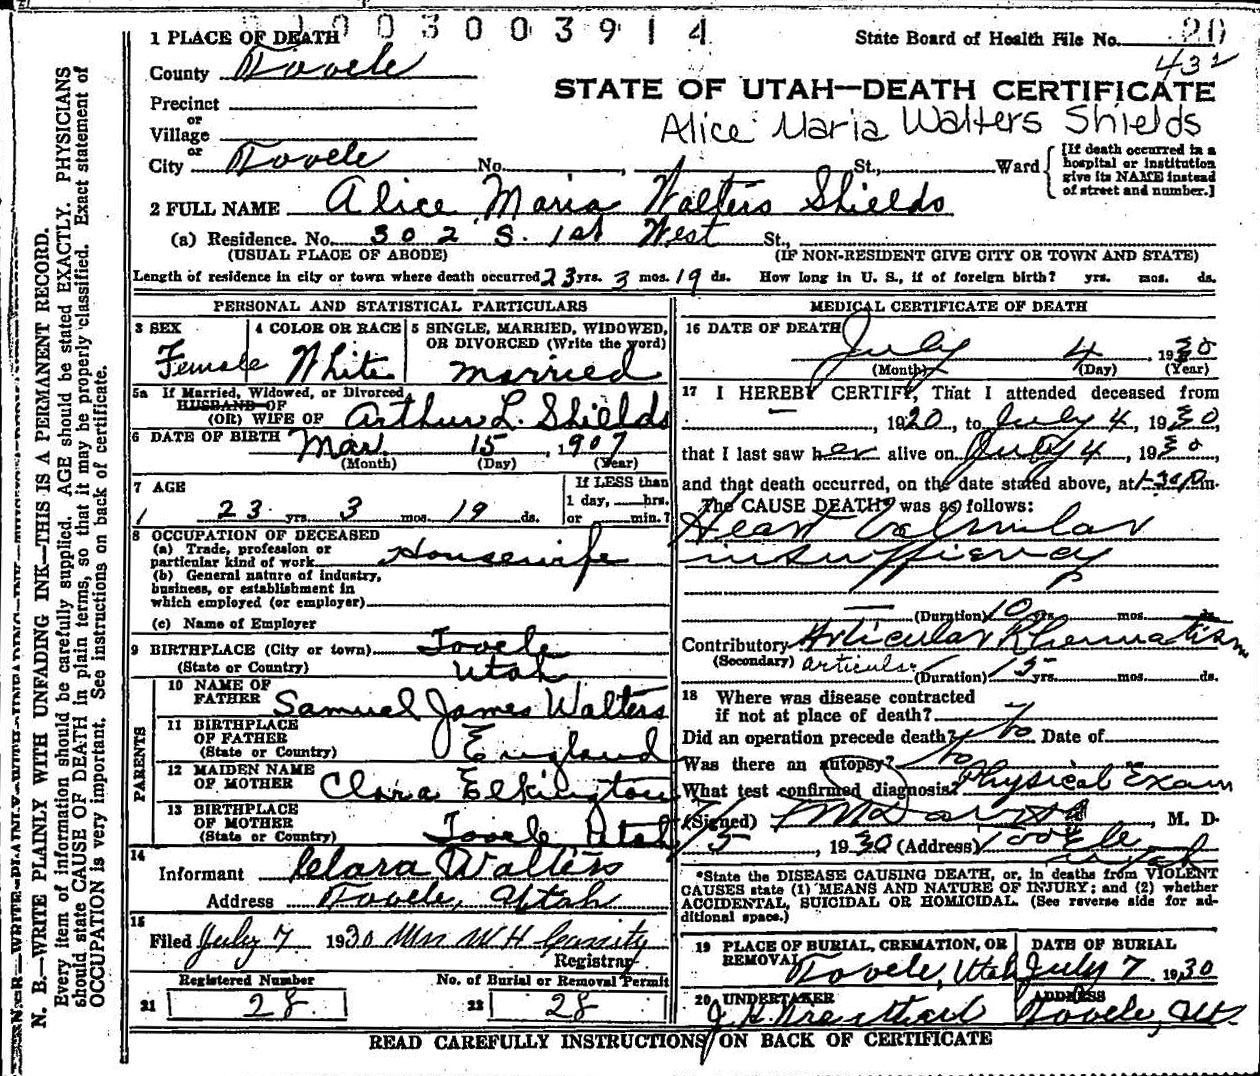 3003914
1 PLACE OF DEATH
State Board of Health File No. 20
432
County Tooele
STATE OF UTAH—DEATH CERTIFICATE
Precinct
or
Village
or
Alice Maria Walters Shields
City Tooele No. St., Ward
[If death occurred in a
hospital or institution
give its NAME instead
of street and number.]
2 FULL NAME Alice Maria Walters Shields
(a) Residence. No. 302 S. 1st West St.,
(USUAL PLACE OF ABODE) (IF NON-RESIDENT GIVE CITY OR TOWN AND STATE)
Length of residence in city or town where death occurred 23 yrs. 3 mos. 19 ds. How long in U. S., if of foreign birth? yrs. mos. ds.
PERSONAL AND STATISTICAL PARTICULARS
3 SEX 4 COLOR OR RACE 5 SINGLE, MARRIED, WIDOWED,
OR DIVORCED (Write the word)
Female White Married
5a If Married, Widowed, or Divorced
HUSBAND OF
(OR) WIFE OF Arthur L. Shields
6 DATE OF BIRTH Mar. 15, 1907
(Month) (Day) (Year)
7 AGE If LESS than
1 day, hrs.
23 yrs. 3 mos. 19 ds. or min.?
8 OCCUPATION OF DECEASED
(a) Trade, profession or
particular kind of work Housewife
(b) General nature of industry,
business, or establishment in
which employed (or employer)
(c) Name of Employer
9 BIRTHPLACE (City or town) Tooele
(State or Country) Utah
PARENTS
10 NAME OF
FATHER Samuel James Walters
11 BIRTHPLACE
OF FATHER
(State or Country) England
12 MAIDEN NAME
OF MOTHER Clara Elkington
13 BIRTHPLACE
OF MOTHER
(State or Country) Tooele Utah
14
Informant Clara Walters
Address Tooele, Utah
15
Filed July 7 1930 Mrs W H Cassity
Registrar
Registered Number No. of Burial or Removal Permit
21 28 22 28
MEDICAL CERTIFICATE OF DEATH
16 DATE OF DEATH
July 4, 1930
(Month) (Day) (Year)
17 I HEREBY CERTIFY, That I attended deceased from
, 1920, to July 4, 1930,
that I last saw her alive on July 4, 1930
and that death occurred, on the date stated above, at 1:30 p.m.
The CAUSE DEATH* was as follows:
Heart Valvular
insufficiency
(Duration) 10 yrs. mos. ds.
Contributory Articular Rheumatism
(Secondary) articular (Duration) 15 yrs. mos. ds.
18 Where was disease contracted
if not at place of death?
Did an operation precede death? No Date of
Was there an autopsy? No
What test confirmed diagnosis? Physical Exam
(Signed) M. D.
7/5, 1930 (Address) Tooele
Utah
*State the DISEASE CAUSING DEATH, or, in deaths from VIOLENT
CAUSES state (1) MEANS AND NATURE OF INJURY; and (2) whether
ACCIDENTAL, SUICIDAL OR HOMICIDAL. (See reverse side for ad-
ditional space.)
19 PLACE OF BURIAL, CREMATION, OR
REMOVAL
Tooele, Utah
DATE OF BURIAL
July 7 1930
20 UNDERTAKER
ADDRESS
Tooele, Ut.
READ CAREFULLY INSTRUCTIONS ON BACK OF CERTIFICATE
N. B.—WRITE PLAINLY WITH UNFADING INK—THIS IS A PERMANENT RECORD.
Every item of information should be carefully supplied. AGE should be stated EXACTLY. PHYSICIANS
should state CAUSE OF DEATH in plain terms, so that it may be properly classified. Exact statement of
OCCUPATION is very important. See instructions on back of certificate.